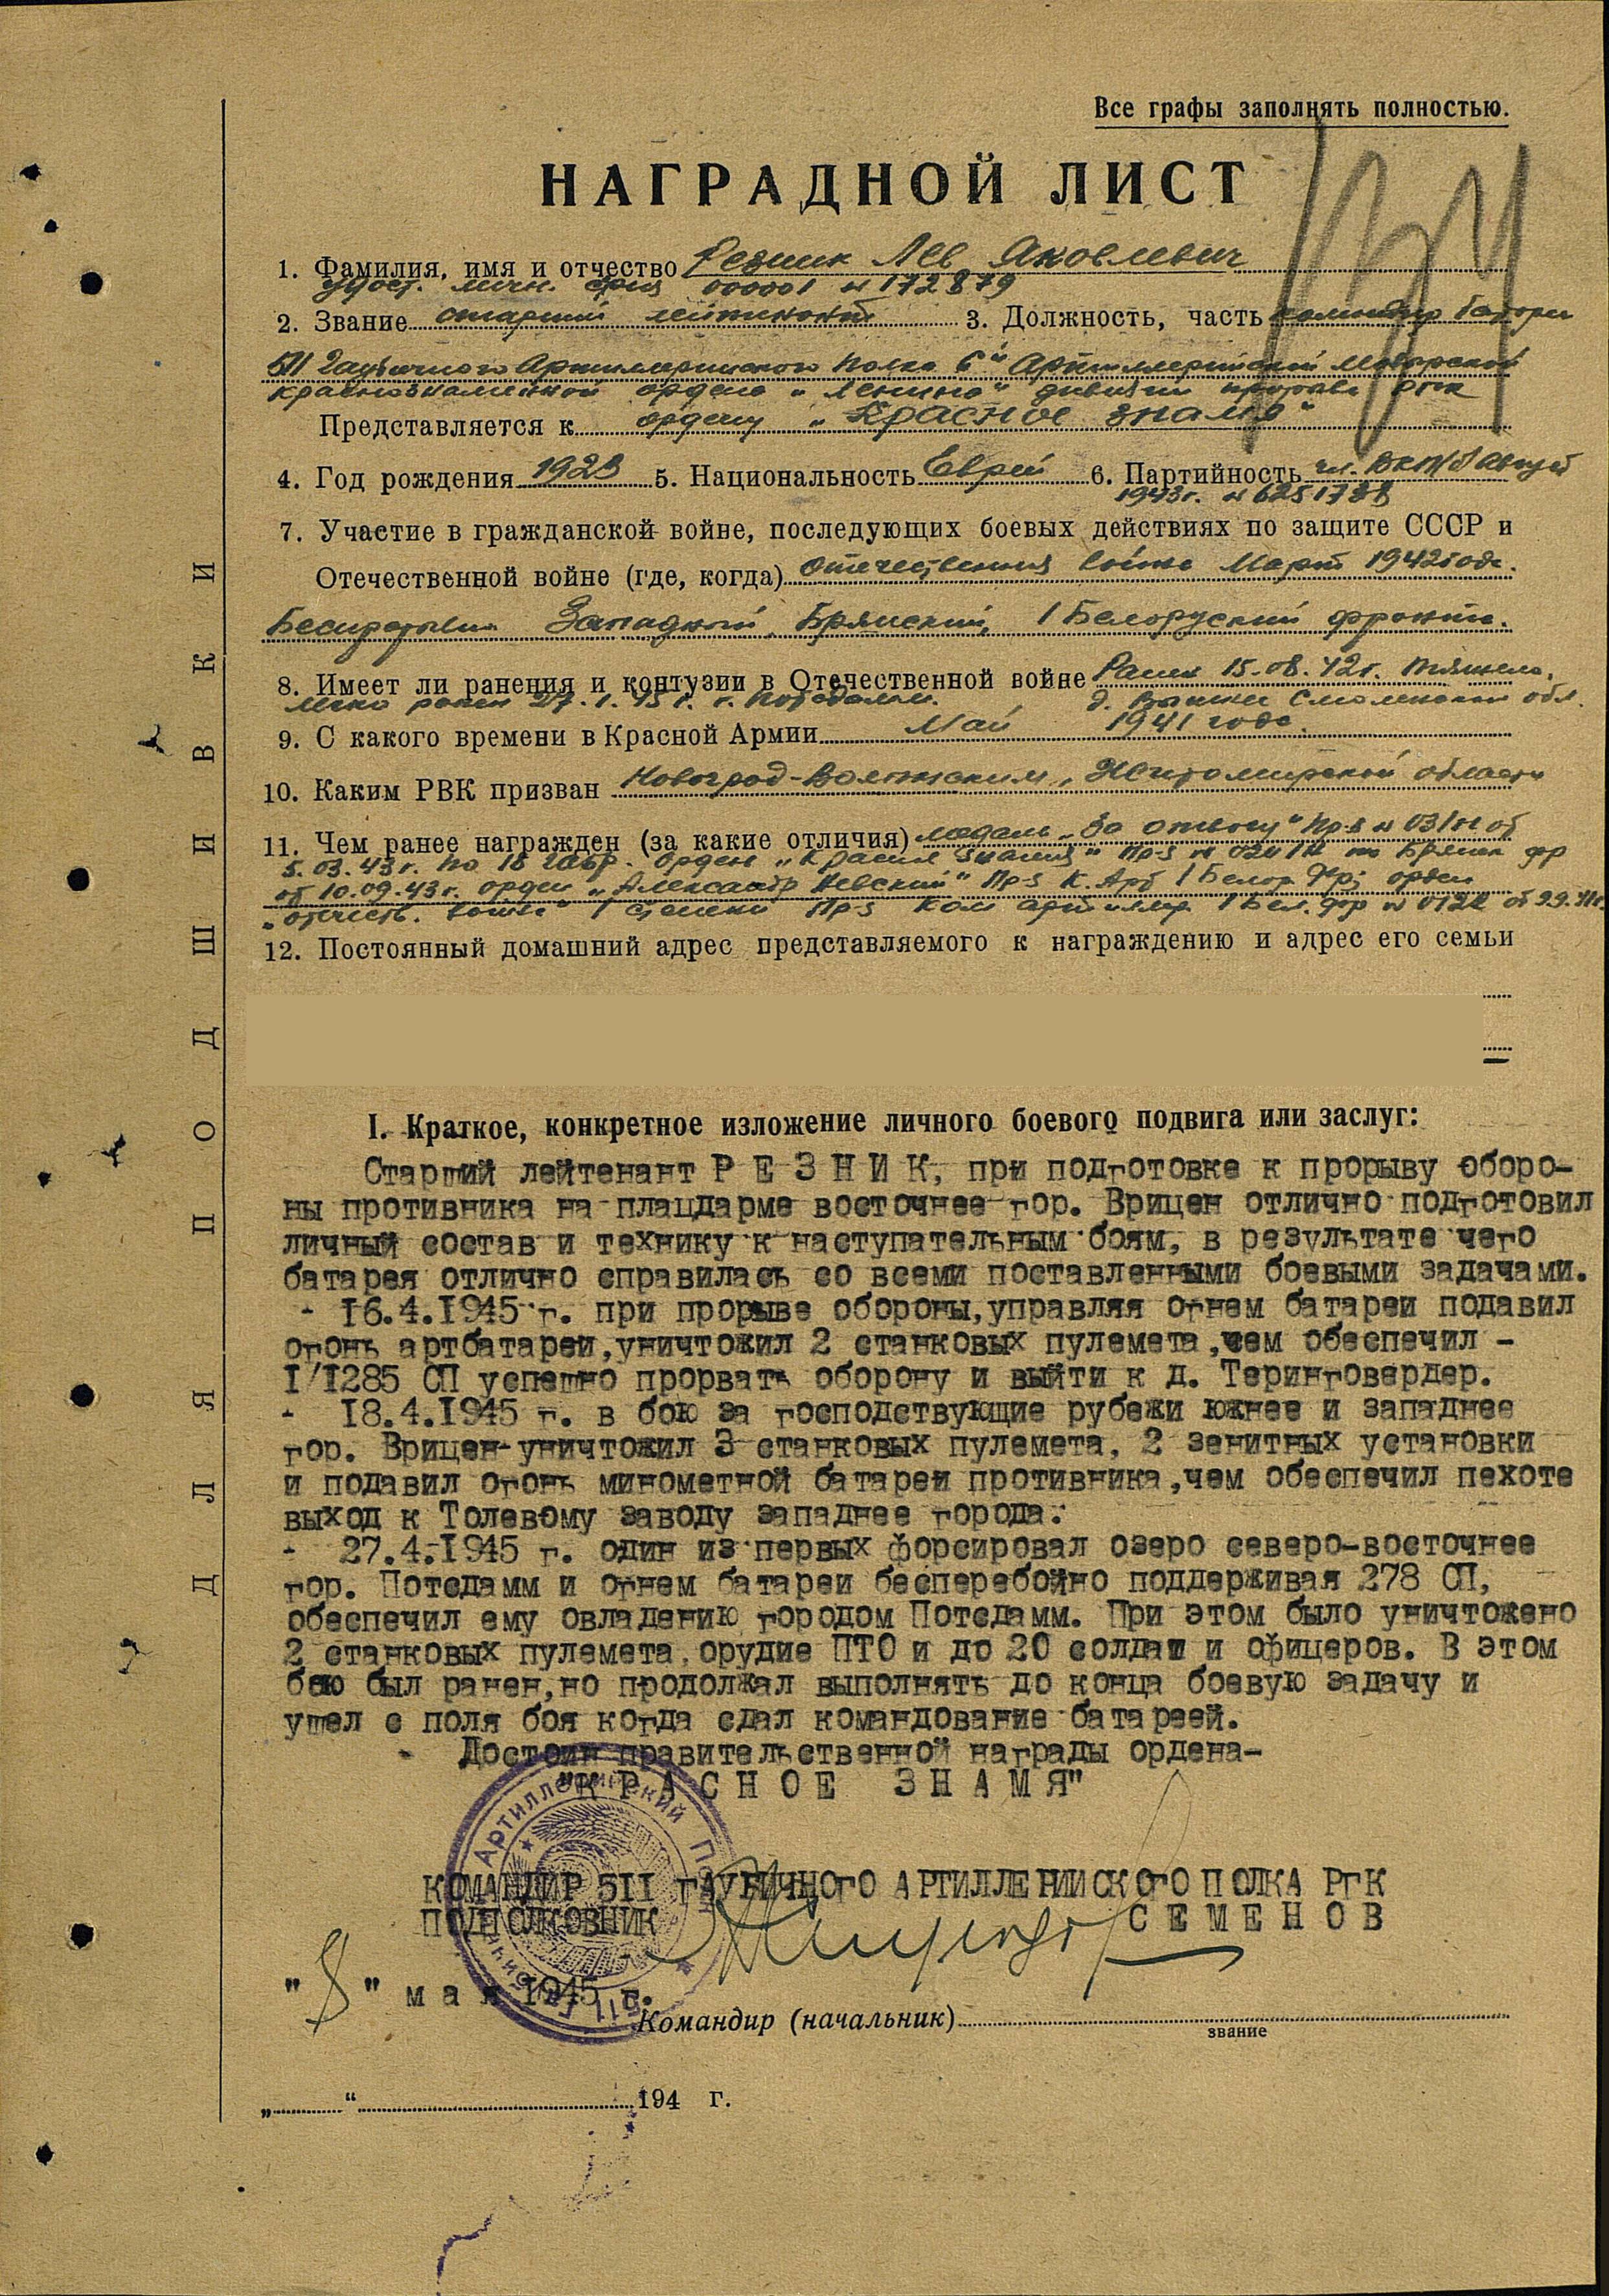 Все графы заполнять полностью.
НАГРАДНОЙ ЛИСТ
1. Фамилия, имя и отчество Резник Лев Яковлевич
удост. личн. 000001 н 172879
2. Звание старший лейтенант 3. Должность, часть командир батареи
511 Гаубичного Артиллерийского полка 6й Артиллерийской Мозырской
краснознаменной ордена „Ленина" дивизии прорыва РГК
Представляется к ордену „Красное знамя"
4. Год рождения 1923 5. Национальность Еврей 6. Партийность чл. ВКП/б август
1943г. н 6251738
7. Участие в гражданской войне, последующих боевых действиях по защите СССР и
Отечественной войне (где, когда) отечественная война Март 1942 года.
Западный, Брянский, 1 Белоруский фронты.
8. Имеет ли ранения и контузии в Отечественной войне Ранен 15.08.42г. тяжело,
легко ранен 27. г. Потсдамм. д. Смоленской обл.
9. С какого времени в Красной Армии Май 1941 года.
10. Каким РВК призван Новоград-Волынским, Житомирской области
11. Чем ранее награжден (за какие отличия) медаль „За отвагу" Пр-з н 03/н от
5.03.43г. по 18 орден „Красная знамя" Пр-з н Брянск фр
от 10.09.43г. орден „Александр Невский" Пр-з К. Арт 1 Белор. фр; орден
„отечеств. война" 1 степени Пр-з Ком артиллер 1 Бел. фр н от
12. Постоянный домашний адрес представляемого к награждению и адрес его семьи
I. Краткое, конкретное изложение личного боевого подвига или заслуг:
Старший лейтенант Р Е З Н И К, при подготовке к прорыву оборо-
ны противника на плацдарме восточнее гор. Врицен отлично подготовил
личный состав и технику к наступательным боям, в результате чего
батарея отлично справилась со всеми поставленными боевыми задачами.
- 16.4.1945 г. при прорыве обороны,управляя огнем батареи подавил
огонь артбатареи,уничтожил 2 станковых пулемета,чем обеспечил -
I/1285 СП успешно прорвать оборону и выйти к д. Теринговердер.
- 18.4.1945 г. в бою за господствующие рубежи южнее и западнее
гор. Врицен уничтожил 3 станковых пулемета, 2 зенитных установки
и подавил огонь минометной батареи противника,чем обеспечил пехоте
выход к Толевому заводу западнее города.
- 27.4.1945 г. один из первых форсировал озеро северо-восточнее
гор. Потсдамм и огнем батареи бесперебойно поддерживая 278 СП,
обеспечил ему овладению городом Потсдамм. При этом было уничтожено
2 станковых пулемета,орудие ПТО и до 20 солдат и офицеров. В этом
бою был ранен,но продолжал выполнять до конца боевую задачу и
ушел с поля боя когда сдал командование батареей.
Достоин правительственной награды ордена-
"К Р А С Н О Е З Н А М Я"
КОМАНДИР 511 ГАУБИЧНОГО АРТИЛЛЕРИЙСКОГО ПОЛКА РГК
ПОДПОЛКОВНИК С Е М Е Н О В
"8" мая 1945 г.
Командир (начальник)
звание
„ “ 194 г.
ДЛЯ ПОДШИВКИ
Артиллерийский
511